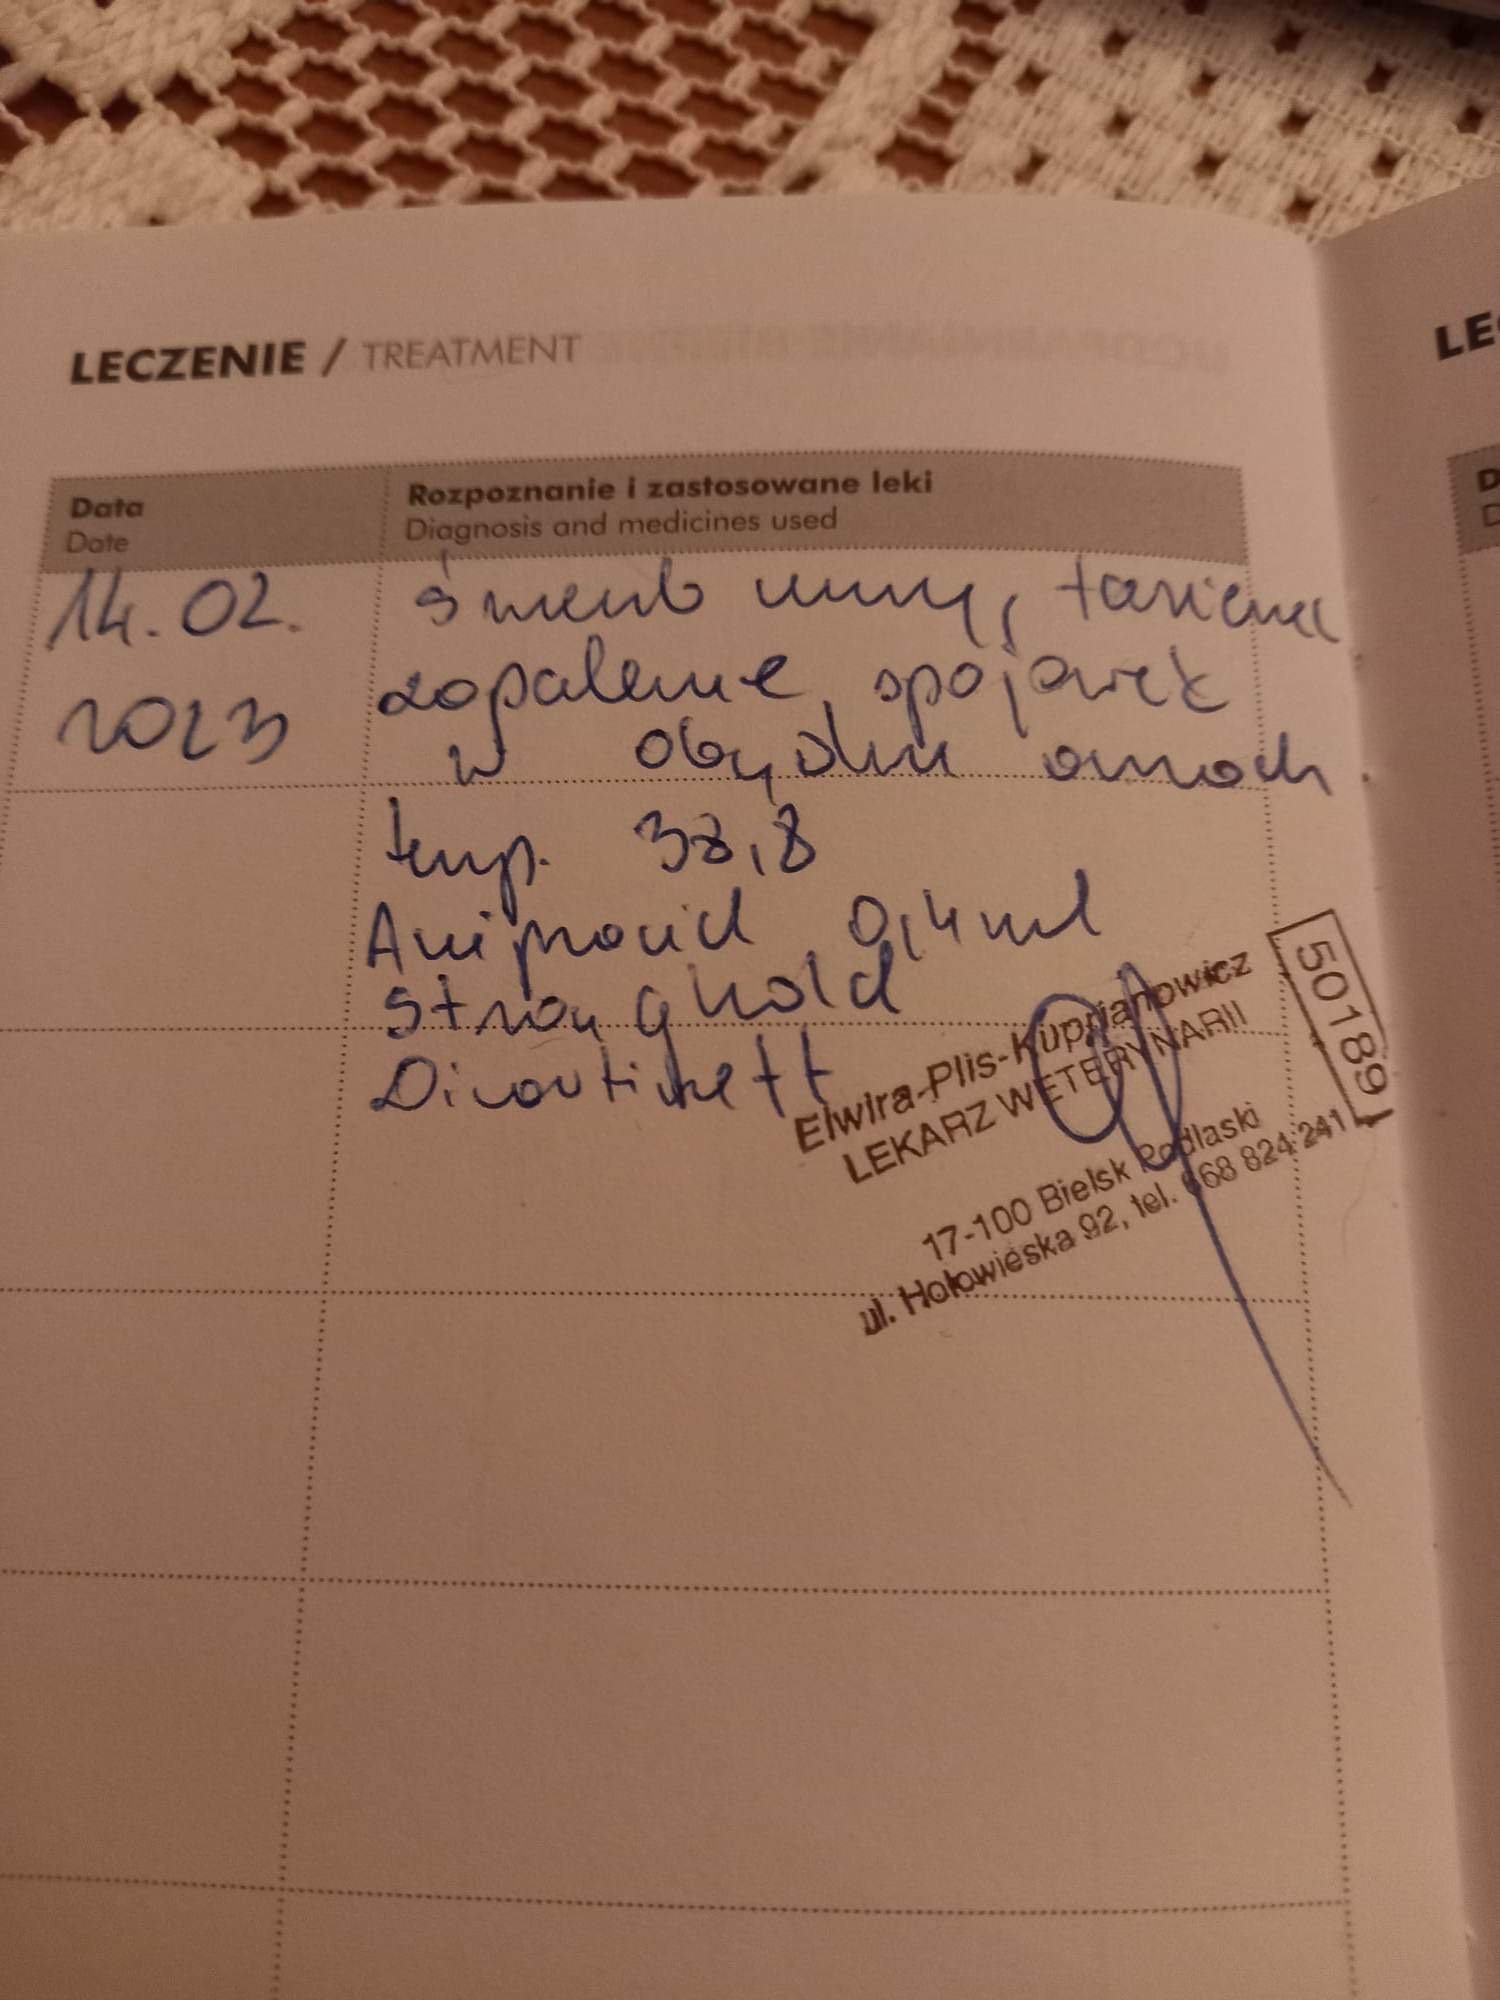 LECZENIE / TREATMENT
LE
Data
Date
Rozpoznanie i zastosowane leki
Diagnosis and medicines used
D
D
14.02.
2023
świerzb uszny,
zapalenie spojówek
w obydwu oczach.
temp. 38,8
0,4 ml
Stronghold
501891
Elwira-Plis-Kuprianowicz
LEKARZ WETERYNARII
17-100 Bielsk Podlaski
ul. Hołowieska 92, tel. 668 824 241